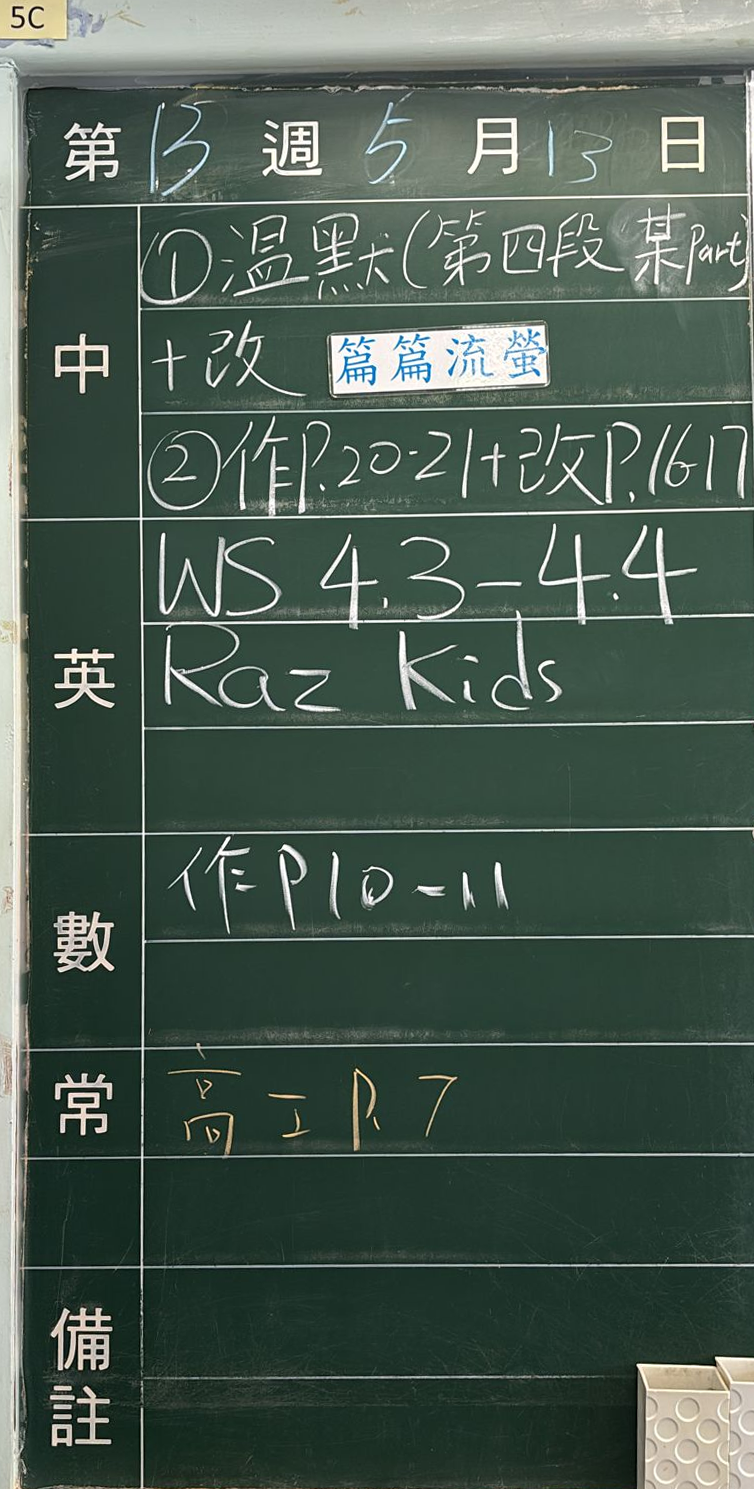 5C
第 13 週 5 月 13 日
中
①溫默(第四段 某Part)
+改 篇篇流螢
②作P.20-21+改P.16-17
英
WS 4.3-4.4
Raz Kids
數
作P10-11
常
高工P.7
備註